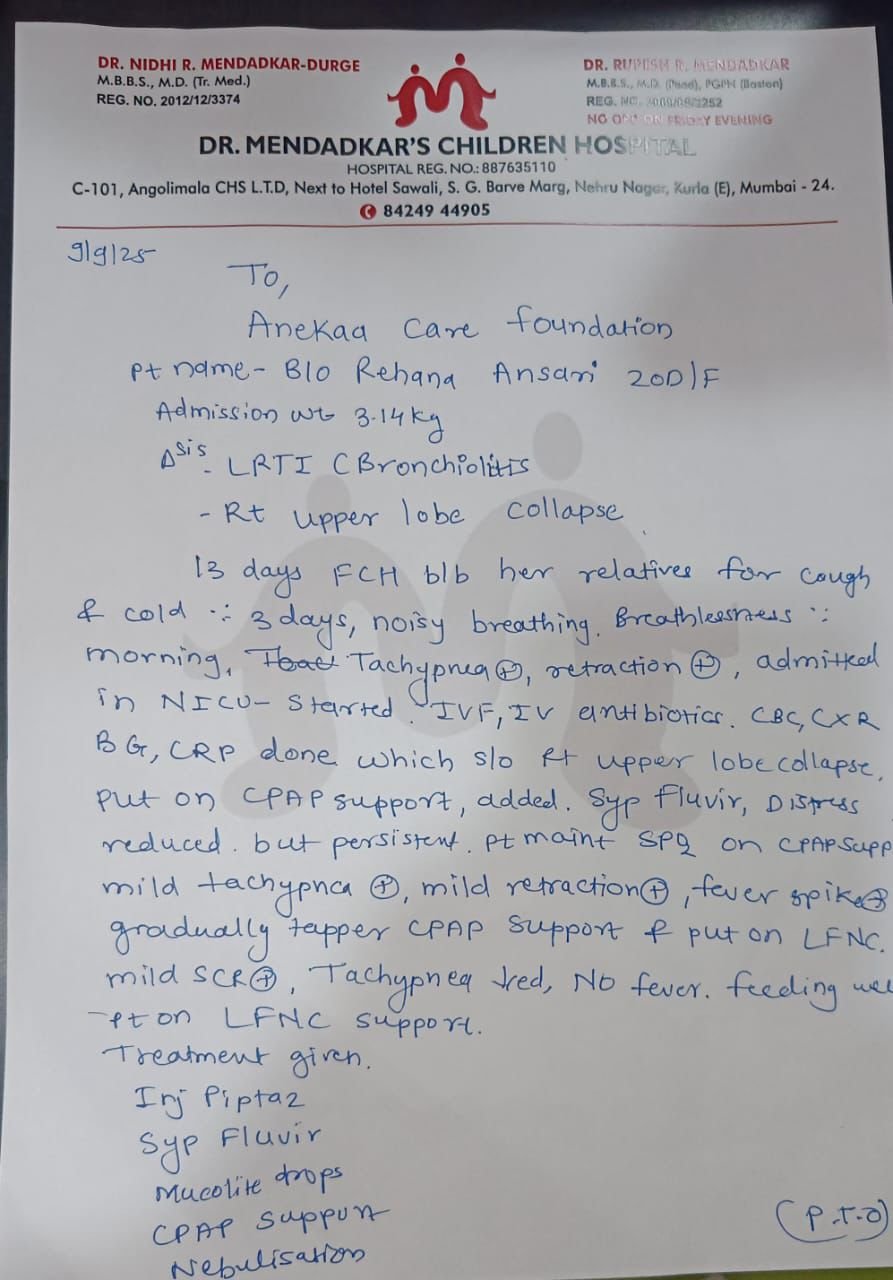 DR. NIDHI R. MENDADKAR-DURGE
M.B.B.S., M.D. (Tr. Med.)
REG. NO. 2012/12/3374
DR. RUPESH R. MENDADKAR
M.B.B.S., M.D. (Paed), PGPN (Boston)
REG. NO.
NO OPD ON FRIDAY EVENING
DR. MENDADKAR'S CHILDREN HOSPITAL
HOSPITAL REG. NO.: 887635110
C-101, Angolimala CHS L.T.D, Next to Hotel Sawali, S. G. Barve Marg, Nehru Nagar, Kurla (E), Mumbai - 24.
84249 44905
9/9/25
To,
Anekaa Care foundation
Pt name - B/o Rehana Ansari 20D/F
Admission wt 3.14kg
Δsis - LRTI C Bronchiolitis
- Rt upper lobe collapse
13 days FCH b/b her relatives for cough
& cold ∵ 3 days, noisy breathing. Breathlessness ∵
morning, Tachypnea ⊕, retraction ⊕, admitted
in NICU - Started IVF, IV antibiotics. CBC, CXR
BG, CRP done which s/o Rt upper lobe collapse,
put on CPAP support, added. Syp Fluvir, Distress
reduced. but persistent. pt maint SPO2 on CPAP Supp
mild tachypnea ⊕, mild retraction ⊕, fever spike ⊕
gradually tapper CPAP support & put on LFNC.
mild SCR ⊕, Tachypnea ↓red, No fever. feeding well
- pt on LFNC support.
Treatment given.
Inj Piptaz
Syp Fluvir
Mucolite drops
CPAP Support
Nebulisation
(P.T.O)